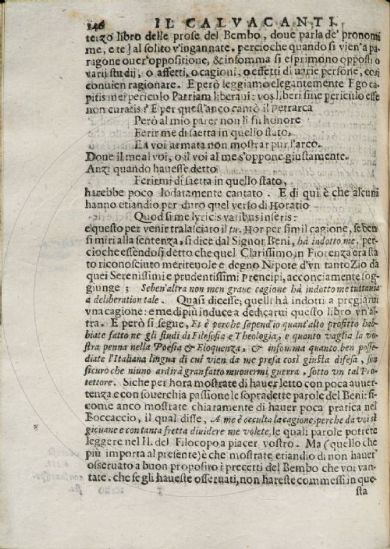 246 IL CALVACANTI.
terzo libro delle prose del Bembo, doue parla de' pronomi
me, e te] al solito v'ingannate, percioche quando si vien'a pa-
ragone ouer'oppositione, & insomma si esprimono oppostio
varii studij, o affetti, o cagioni, o effetti di uarie persone, cosi
conuien ragionare. E però leggiamo elegantemente Ego ca-
pitis mei periculo Patriam liberaui: vos liberi sine periculo esse
non curatis? E per quest'arco cantò il Petrarca
Però al mio parer non li fu honore
Ferir me di saetta in quello stato,
E a voi armata non mostrar pur l'arco.
Doue il me al voi, o il voi al me s'oppone giustamente.
Anzi quando hauesse detto
Ferirmi di saetta in quello stato,
harebbe poco lodatamente cantato. E di quì è che alcuni
hanno etiandio per duro quel verso di Horatio
Quod si me lyricis vatibus inseris:
e questo per venir tralasciato il tu. Hor per simil cagione, se ben
si miri alla sentenza, si dice dal Signor Beni, hà indotto me, per-
cioche essendosi detto che quel Clarissimo, in Fiorenza era sta-
to riconosciuto meriteuole e degno Nipote d'vn tanto Zio da
quei Serenissimi e prudentissimi Prencipi, acconciamente sog-
giunge; Seben'altra non men graue cagione hà indotto me tuttauia
a deliberation tale. Quasi dicesse; quelli hà indotti a pregiarui
vna cagione: e me di più induce a dedicarui questo libro vn'al-
tra. E però si segue, Et è perche sapend'io quant'alto profitto hab-
biate fatto ne gli studi di Filosofia e Theologia, e quanto vaglia la vo-
stra penna nella Poesia & Eloquenza, & insomma quanto ben posse-
diate l'Italiana lingua di cui vien da me presa così giusta difesa, son
sicuro che niuno ardirà gran fatto muouermi guerra, sotto vn tal Pro-
tettore. Siche per hora mostrate di hauer letto con poca auuer-
tenza e con souerchia passione le sopradette parole del Beni: si-
come anco mostrate chiaramente di hauer poca pratica nel
Boccaccio, il qual disse, A me è occulta la cagione, perche da voi il
giouane e con tanta fretta diuidere me volete, le quali parole potrete
leggere nel II. del Filocopo a piacer vostro. Ma (quello che
più importa al presente) è che mostrate etiandio di non hauer
osseruato a buon proposito i precetti del Bembo che voi van-
tate. che se gli haueste osseruati, non hareste commessi in que-
sta